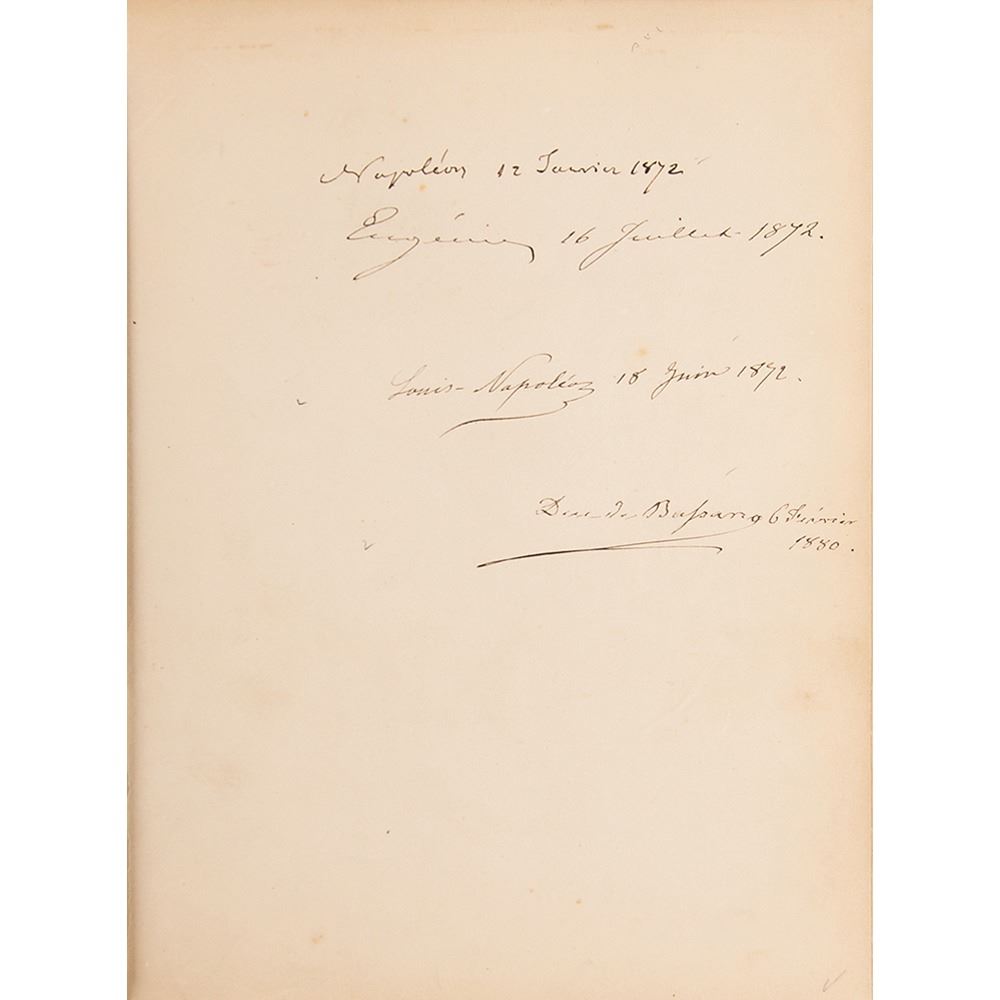 Napoléon 12 Janvier 1872
Eugénie 16 Juillet 1872.
Louis-Napoléon 18 Juin 1872.
Duc de Bassano 6 Février
1880.